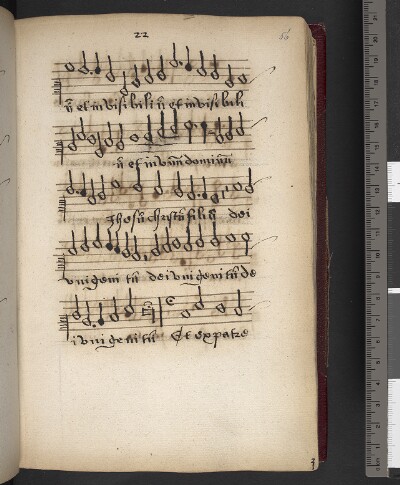 22
56
u et invisibiliu et invisibili
u et in unum dominum
Jhesu christu filiu dei
unigeni tu dei unigenitu de
i unigenitu Et ex patre